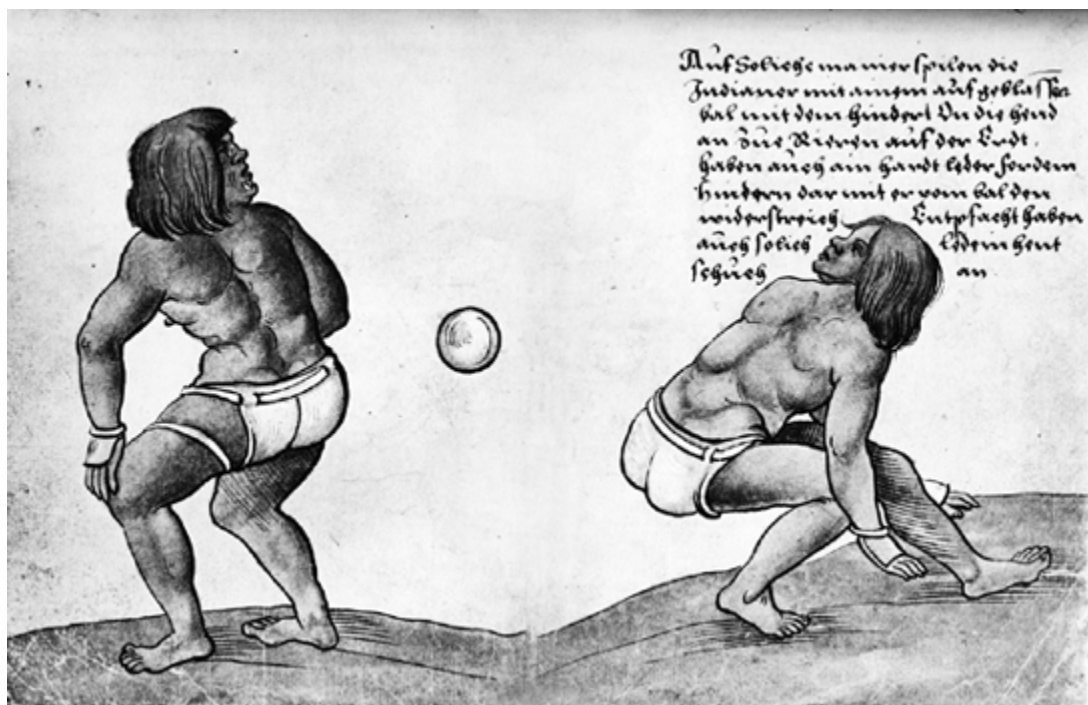 Auf Soliche manier spilen die
Indianer mit ainem auf geblassen
bal mit dem hindert On die hend
an Zue Rieren auf der Erdt.
haben auch ain hardt leder fordem
hindern dar mit er vom bal den
widerstreich Entpfacht haben
auch solich ledern hent
schuch an